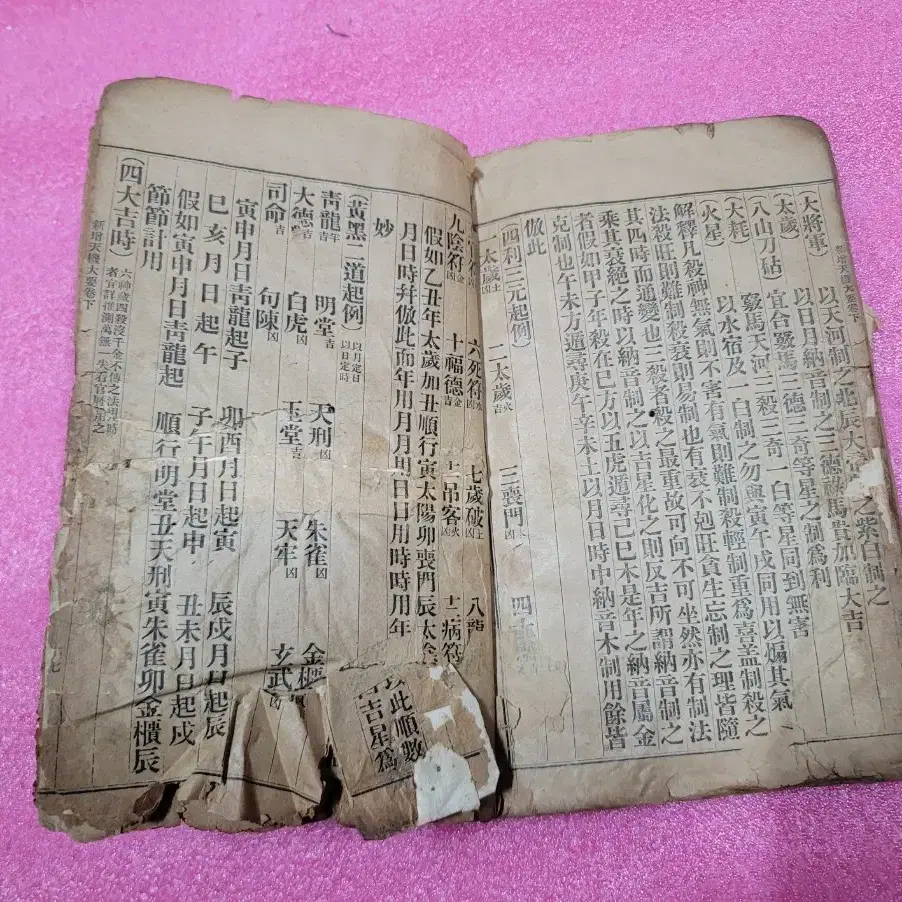 新增天機大要卷下
(大將軍) 以天河制之北辰大 之紫白制之
(太歲) 以日月納音制之三德祿馬貴加臨大吉
八山刀砧 宜合竅馬三德三奇等星之制爲利
(大耗) 竅馬天河三殺三奇一白等星同到無害
(火星) 以水宿及一白制之勿與寅午戌同用以煽其氣
解釋凡殺神無氣則不害有氣則難制殺輕制重爲喜盖制殺之
法殺旺則難制殺衰則易制也有衰不剋旺貪生忘制之理皆隨
其四時而通變也三殺者殺之最重故可向不可坐然亦有制法
乘其衰絕之時以納音制之以吉星化之則反吉所謂納音制之
者假如甲子年殺在巳方以五虎遁尋己巳木是年之納音屬金
克制也午未方遁尋庚午辛未土以月日時中納音木制用餘皆
倣此
(四利三元起例)
一太歲土凶 二太歲火吉 三喪門木凶 四
六死符水凶 七歲破土凶 八龍
九陰符金凶 十福德金吉 十一吊客火凶 十二病符
假如乙丑年太歲加丑順行寅太陽卯喪門辰太陰
此順數
吉星爲
月日時幷倣此而年用月月用日日用時時用年
妙
(黃黑二道起例) 以月定日以日定時
青龍吉 明堂吉 天刑凶 朱雀凶 金櫃
大德吉 白虎凶 玉堂吉 天牢凶 玄武凶
司命吉 句陳凶
寅申月日青龍起子 卯酉月日起寅 辰戌月日起辰
巳亥月日起午 子午月日起申 丑未月日起戌
假如寅申月日青龍起 順行明堂丑天刑寅朱雀卯金櫃辰
節節計用
(四大吉時) 六神藏四殺沒千金不傳之法 時
者宜詳推測萬無一失 官曆 之
新增天機大要卷下